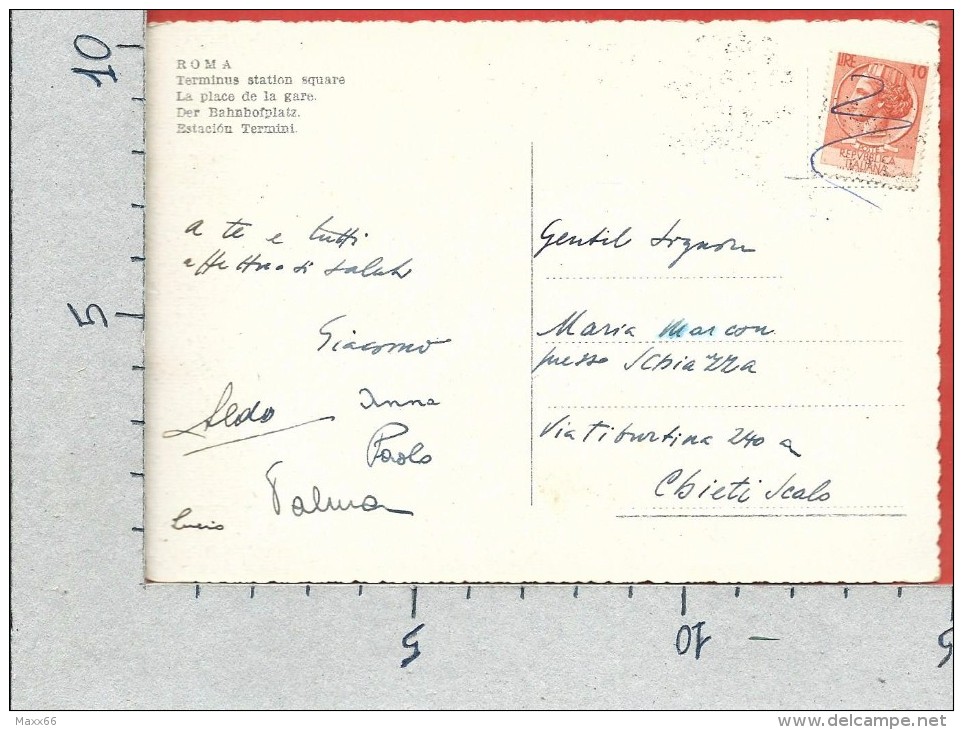 ROMA
Terminus station square
La place de la gare.
Der Bahnhofplatz.
Estación Termini.
LIRE 10
POSTE
REPVBBLICA
ITALIANA
a te e tutti
affettuosi saluti
Giacomo
Aldo
Anna
Paolo
Palma
Lucio
Gentil Signora
Maria Marcon
presso Schiazza
Via Tiburtina 240 a
Chieti Scalo
10
5
5
10
5
Maxx66
delcampe.net